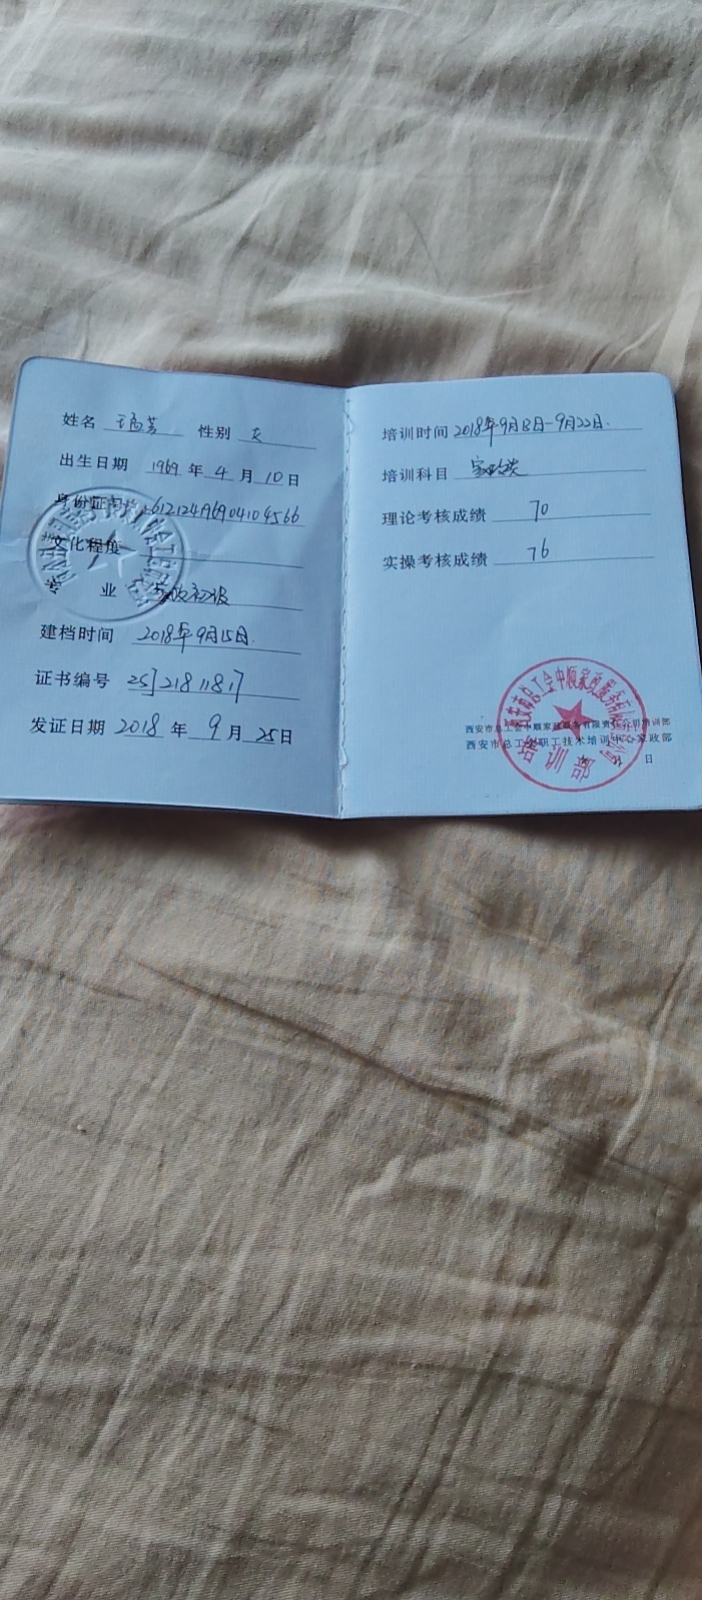 姓名 王孟芳 性别 女
出生日期 1969 年 4 月 10 日
身份证号码
文化程度
业 家政初级
建档时间 2018年9月15日
证书编号 2572181181
发证日期 2018 年 9 月 25 日
培训时间 2018年9月8日-9月22日.
培训科目
理论考核成绩 70
实操考核成绩 76
西安市总工会中顺家政服务有限责任公司培训部
西安市总工会职工技术培训中心家政部
日
培训部